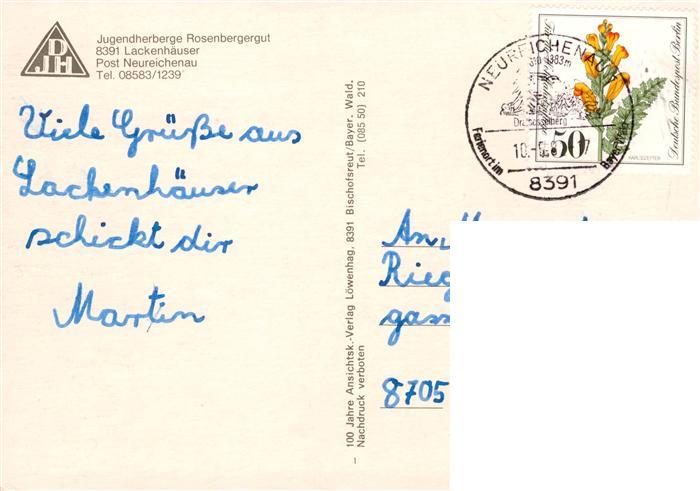 DJH
Jugendherberge Rosenbergergut
8391 Lackenhäuser
Post Neureichenau
Tel. 08583/1239
Viele Grüße aus
Lackenhäuser
schickt dir
Martin
100 Jahre Ansichtsk.-Verlag Löwenhag, 8391 Bischofsreut/Bayer. Wald.
Tel. (085 50) 210
Nachdruck verboten
1
NEUREICHENAU
Dreisesselberg
Ferienort im
8391
50
Deutsche Bundespost Berlin
KARLSZEPTER
8705